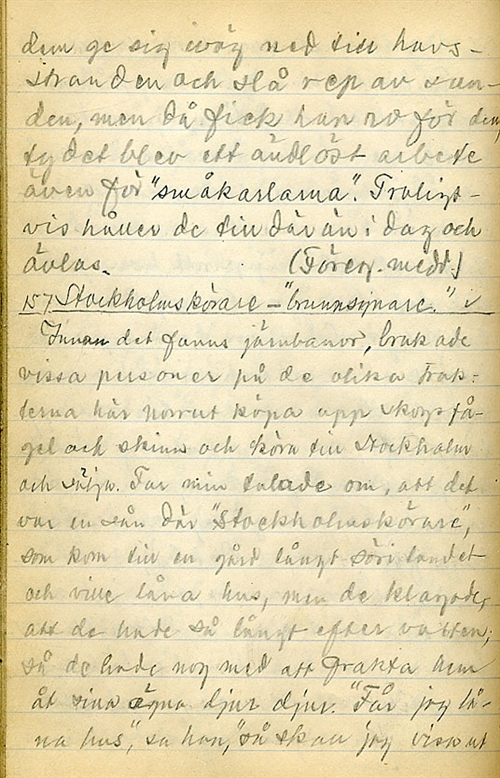 dem ge sig iväg ned till havs-
stranden och slå rep av san-
den, men då fick han ro för dem,
ty det blev ett ändlöst arbete
även för "småkarlarna". Troligt-
vis håller de till där än i dag och
ävlas. (Föreg. medd.)
157 Stockholmskörare – "brunnsynare."
Innan det fanns järnbanor, brukade
vissa personer på de olika trak-
terna här norrut köpa upp skogsfå-
gel och skinn och köra till Stockholm
och sälja. Far min talade om, att det
var en sån där "Stockholmskörare",
som kom till en gård långt söri landet
och ville låna hus, men de klagade,
att de hade så långt efter vatten,
så de hade nog med att frakta hem
åt sina egna djur djur. "Får jag lå-
na hus", sa han, "så skall jag visa ut